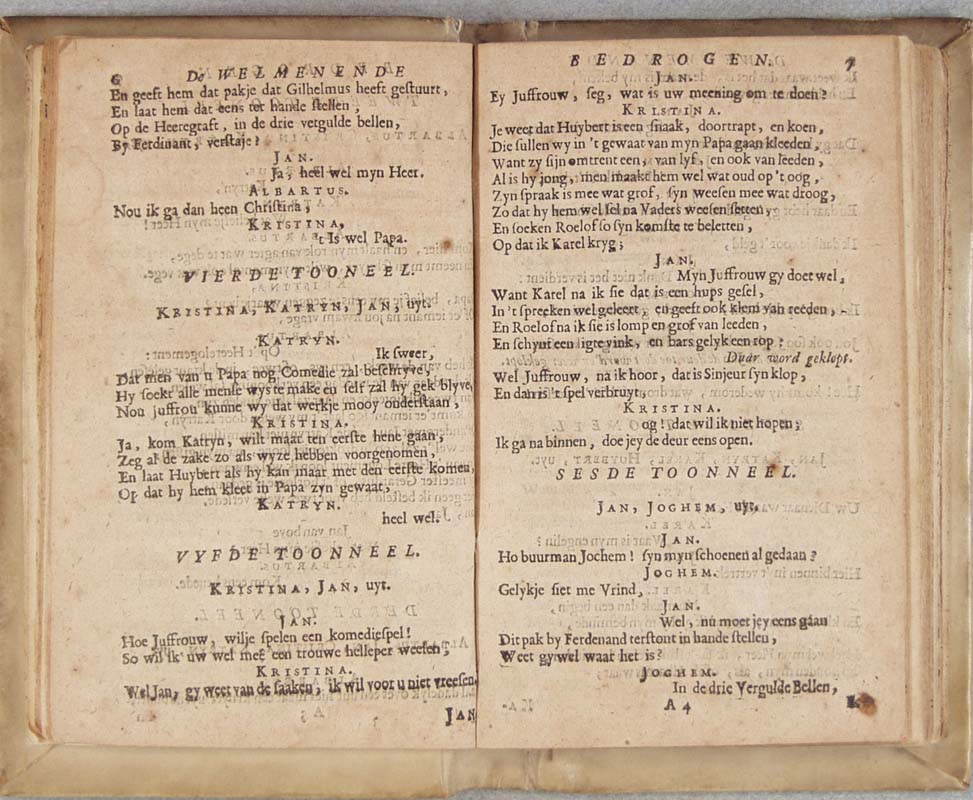 6 De WELMENENDE
En geeft hem dat pakje dat Gilhelmus heeft gestuurt,
En laat hem dat eens ter hande stellen,
Op de Heeregraft, in de drie vergulde bellen,
By Ferdinant, verstaje?
JAN.
Ja, heel wel myn Heer.
ALBARTUS.
Nou ik ga dan heen Christina,
KRISTINA,
't Is wel Papa.
VIERDE TOONEEL.
KRISTINA, KATRYN, JAN, uyt.
KATRYN.
Ik sweer,
Dat men van u Papa nog Comedie zal beschryve,
Hy soekt alle mense wys te maken en self zal hy gek blyve,
Nou juffrou kunne wy dat werkje mooy onderstaan,
KRISTINA.
Ja, kom Katryn, wilt maar ten eerste hene gaan,
Zeg al de zake zo als wyze hebben voorgenomen,
En laat Huybert als hy kan maar met den eerste komen,
Op dat hy hem kleet in Papa zyn gewaat,
KATRYN.
heel wel.
VYFDE TOONNEEL.
KRISTINA, JAN, uyt.
JAN.
Hoe Juffrouw, wilje spelen een komediespel!
So wil ik uw wel mee een trouwe helleper weesen,
KRISTINA.
Wel Jan, gy weet van de saaken, ik wil voor u niet vreesen.
JAN
BEDROGEN. 7
JAN.
Ey Juffrouw, seg, wat is uw meening om te doen?
KRISTINA.
Je weet dat Huybert is een snaak, doortrapt, en koen,
Die sullen wy in 't gewaat van myn Papa gaan kleeden,
Want zy sijn omtrent een, van lyf, en ook van leeden,
Al is hy jong, men maakt hem wel wat oud op 't oog,
Zyn spraak is mee wat grof, syn weesen mee wat droog,
Zo dat hy hem wel sel na Vaders weesen setten,
En soeken Roelof so syn komste te beletten,
Op dat ik Karel kryg;
JAN.
Myn Juffrouw gy doet wel,
Want Karel na ik sie dat is een hups gesel,
In 't spreeken wel geleert, en geeft ook klem van reeden,
En Roelof na ik sie is lomp en grof van leeden,
En schynt een ligte vink, en bars gelyk een rop?
Daar word geklopt.
Wel Juffrouw, na ik hoor, dat is Sinjeur syn klop,
En dan is 't spel verbruyt,
KRISTINA.
og! dat wil ik niet hopen;
Ik ga na binnen, doe jey de deur eens open.
SESDE TOONNEEL.
JAN, JOGHEM, uyt.
JAN.
Ho buurman Jochem! syn myn schoenen al gedaan?
JOGHEM.
Gelykje siet me Vrind,
JAN.
Wel, nu moet jey eens gaan
Dit pak by Ferdenand terstont in hande stellen,
Weet gy wel waar het is?
JOGHEM.
In de drie Vergulde Bellen,
A 4